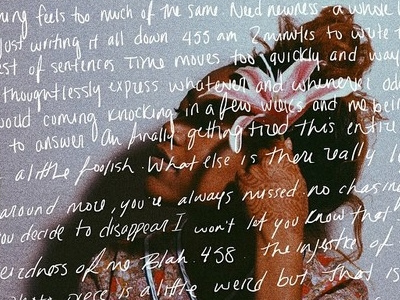 ning feels too much of the same. Need newness - a whole l
Just writing it all down 455 am 2 minutes to write t
est of sentences Time moves too quickly and way
thoughtlessly express whatever and whenever I do
would coming knocking in a few weeks and me bein
to answer Am finally getting tired this entire
a little foolish. What else is there really
around more, you're always missed. no chasing
you decide to disappear I won't let you know that
eirdness of me Blah. 458. the injustice of
piece is a little weird but that is